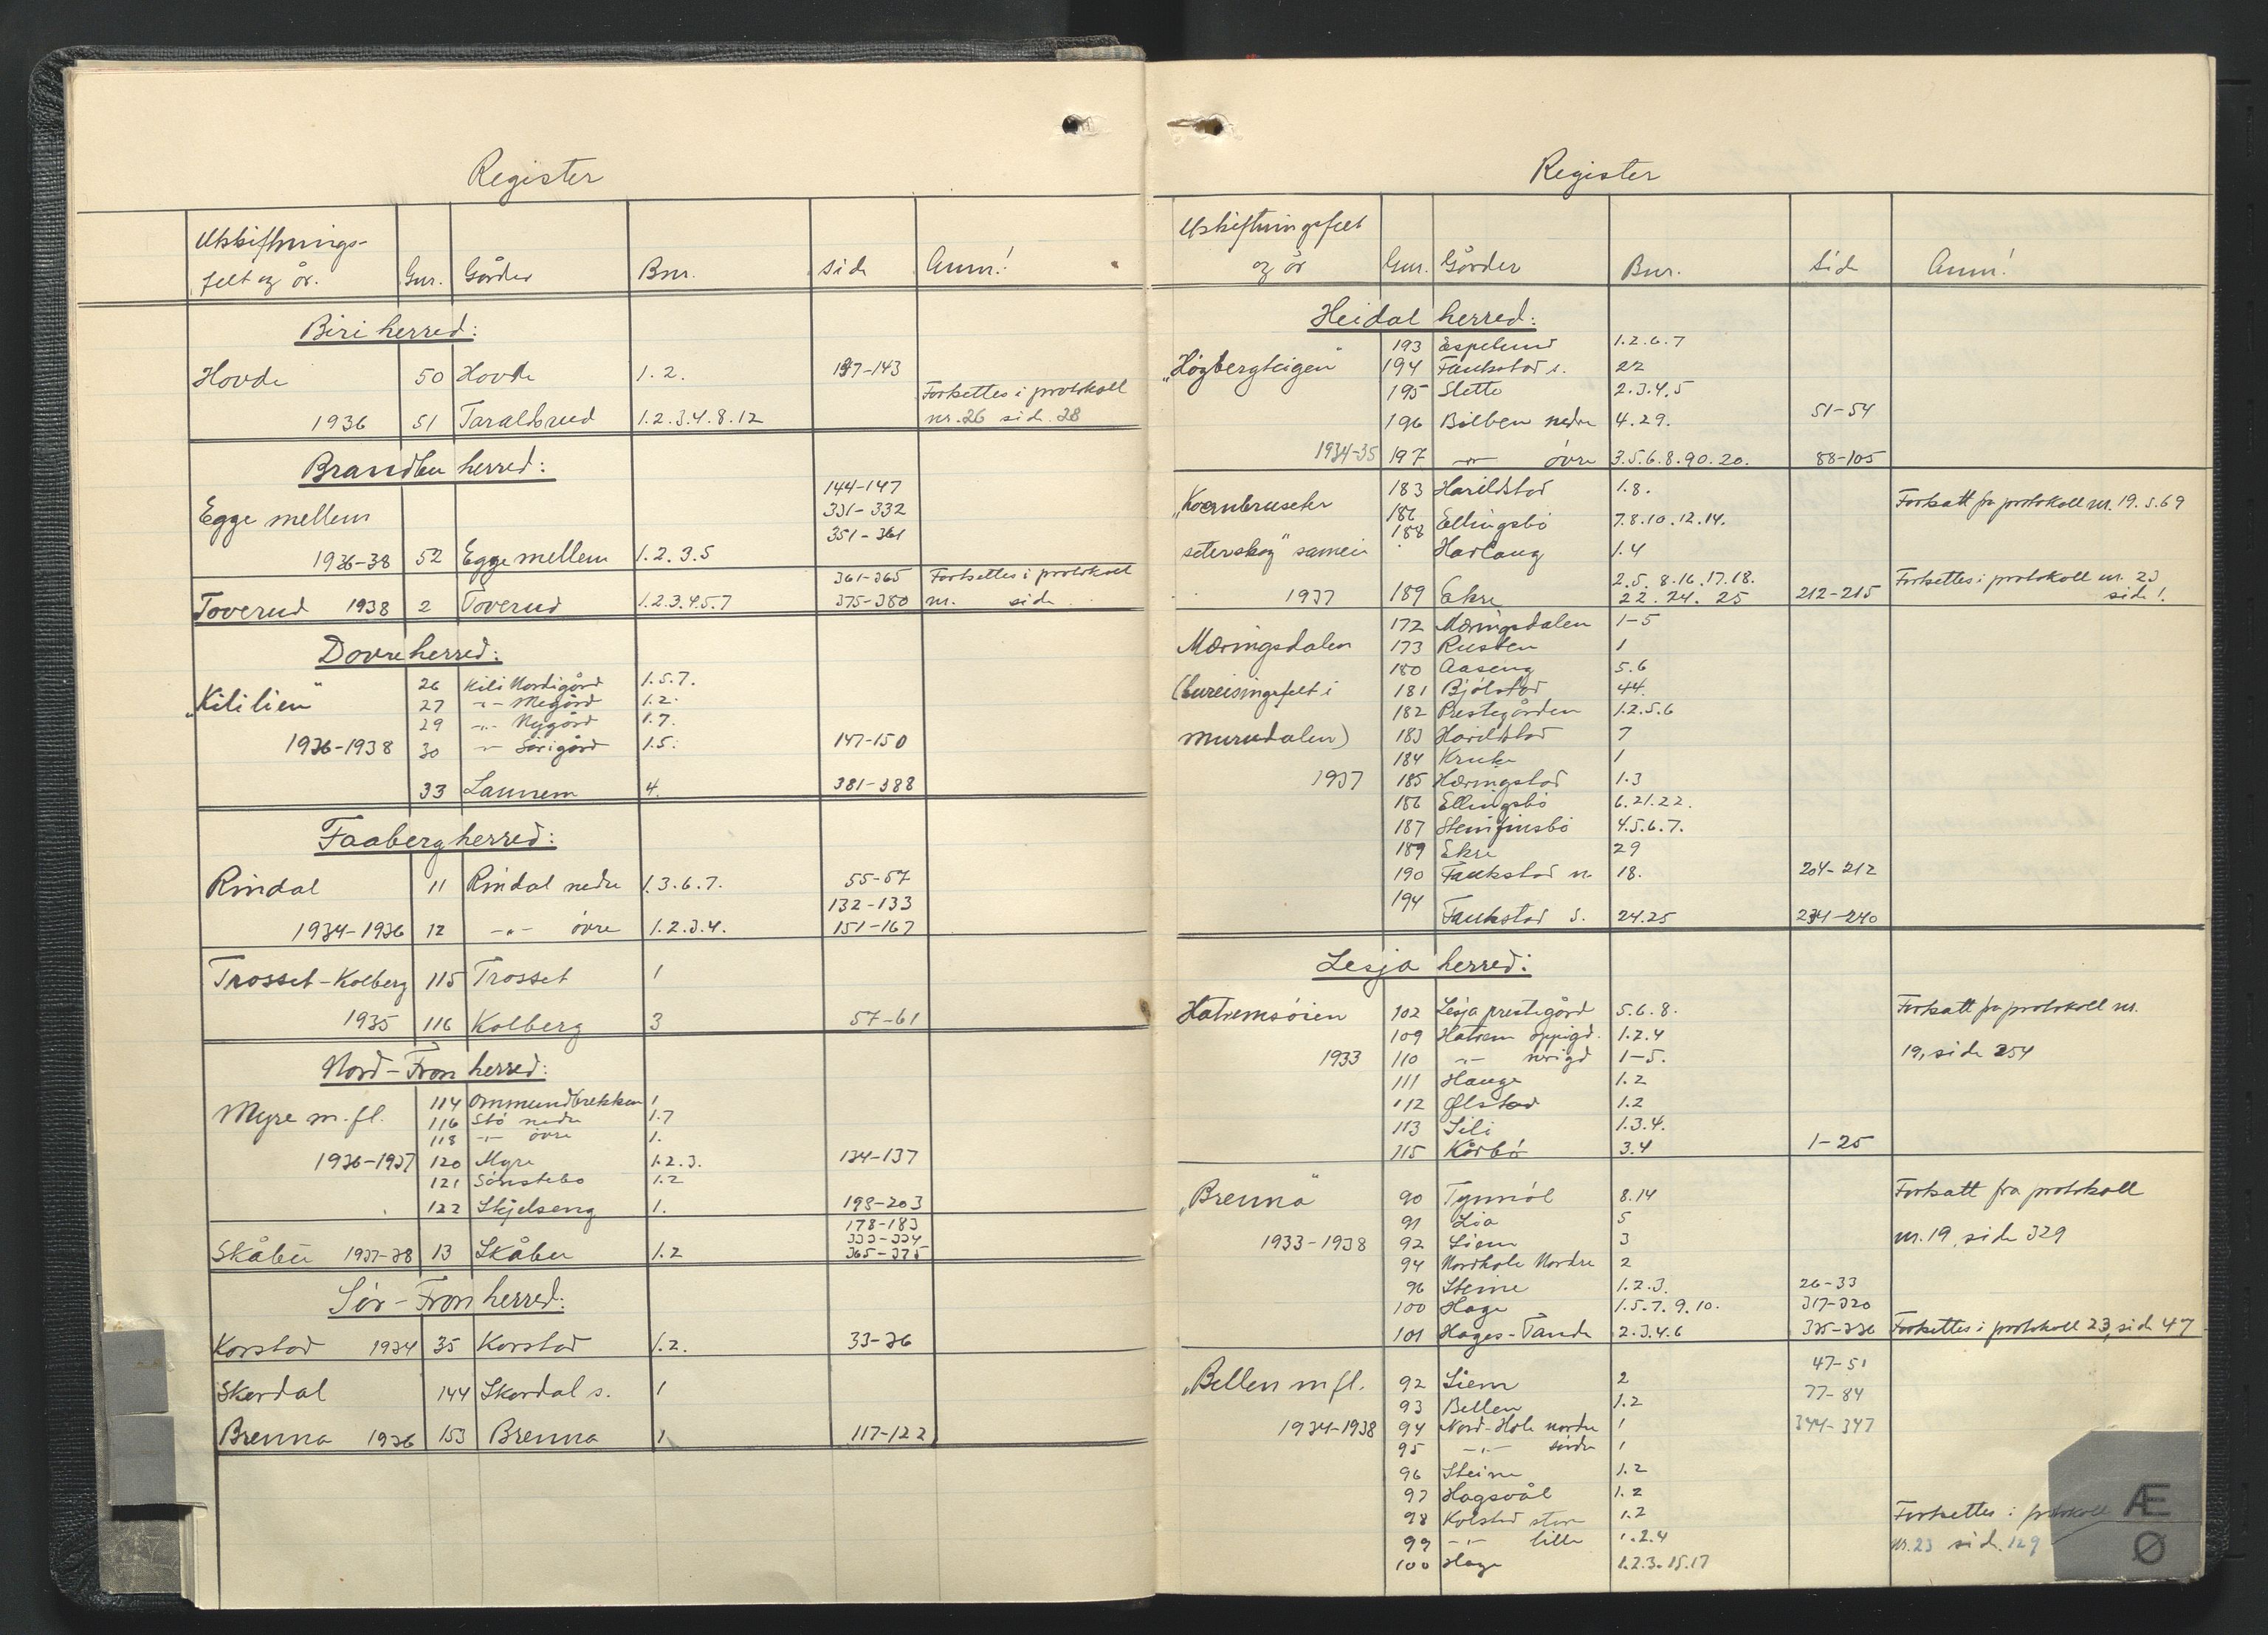 Register
Utskiftnings-
felt og år. Gnr. Gårder Bnr. side Anm!
Biri herred:
Hovde 50 Hovde 1. 2. 137-143
Fortsettes i protokoll
1936 51 Taralsrud 1.2.3.4.8.12 nr. 26 side. 28
Brandbu herred:
144-147
Egge mellem 331-332
351-361
1936-38 52 Egge mellem 1.2.3.5
361-365 Fortsettes i protokoll
Toverud 1938 2 Toverud 1.2.3.4.5.7 375-380 nr. side
Dovre herred:
„Kililien" 26 Kili Nordigård 1.5.7.
27 -"- Megård 1.2.
29 -"- Nygård 1.7.
1936-1938 30 -"- Sørigård 1.5. 147-150
33 Launem 4. 381-388
Faaberg herred:
Rindal 11 Rindal nedre 1.3.6.7. 55-57
132-133
1934-1936 12 -"- øvre 1.2.3.4. 151-167
Trosset-Kolberg 115 Trosset 1
1935 116 Kolberg 3 57-61
Nord-Fron herred:
Myre m.fl. 114 Ommundbrekken 1
116 Stø nedre 1.7
118 -"- øvre 1.
1936-1937 120 Myre 1.2.3. 134-137
121 Sønstebo 1.2
122 Skjelseng 1. 198-203
178-183
333-334
Skåbu 1937-38 13 Skåbu 1.2 365-375
Sør-Fron herred:
Korstad 1934 35 Korstad 1.2. 33-36
Skordal 144 Skordal s. 1
Brenna 1936 153 Brenna 1 117-122
Register
Utskiftningsfelt
og år Gnr. Gårder Bnr. Side Anm!
Heidal herred:
193 Espelund 1.2.6.7
„Høgbergteigen" 194 Faukstad s. 22
195 Sletto 2.3.4.5
196 Bilben nedre 4.29. 51-54
1934-35 197 -"- øvre 3.5.6.8.90.20. 88-105
„Kornbruseter 183 Harildstad 1.8. Fortsatt fra protokoll nr. 19. s. 69
186 Ellingsbø 7.8.10.12.14.
188
seterskog" sameie Harlaug 1.4
2.5. 8.16.17.18. Fortsettes i protokoll nr. 23
1937 189 Ekre 22. 24. 25 212-215 side!
172 Mæringsdalen 1-5
Mæringsdalen 173 Rusten 1
180 Aaseng 5.6
(bureisingsfelt i 181 Bjølstad 44.
182 Prestegården 1.2.5.6
Murudalen) 183 Harildstad 7
184 Kruke 1
1937 185 Hæringstad 1.3
186 Ellingsbø 6.21.22.
187 Steinfinsbø 4.5.6.7.
189 Ekre 29
190 Faukstad n. 18. 204-212
194 Faukstad s. 24.25 234-240
Lesja herred:
Hatremsøien 102 Lesja prestegård 5.6.8. Fortsatt fra protokoll nr.
109 Hatrem oppigd. 1.2.4
1933 110 -"- nerigd 1-5. 19, side 254
111 Hauge 1.2
112 Ølstad 1.2
113 Lili 1.3.4.
115 Kårbø 3.4 1-25
„Brenna" 90 Tynnøl 8.14 Fortsatt fra protokoll
91 Lia 5
1933-1938 92 Liem 3 nr. 19, side 329
94 Nordhole Nordre 2
96 Steine 1.2.3. 26-33
100 Hage 1.5.7.9.10. 317-320
101 Hages-Tande 2.3.4.6 335-336 Fortsettes i protokoll 23, side 47
47-51
„Bellen m fl. 92 Liem 2
77-84
93 Bellen 1.2
1934-1938 94 Nord-Hole nordre 1 344-347
95 -"- søndre 1
96 Steine 1.2
97 Hagsvål 1.2
98 Kolstad store 1.2 Fortsettes i protokoll
99 -"- lille 1.2.4 nr. 23 side. 129
100 Hage 1.2.3.15.17
Æ
Ø